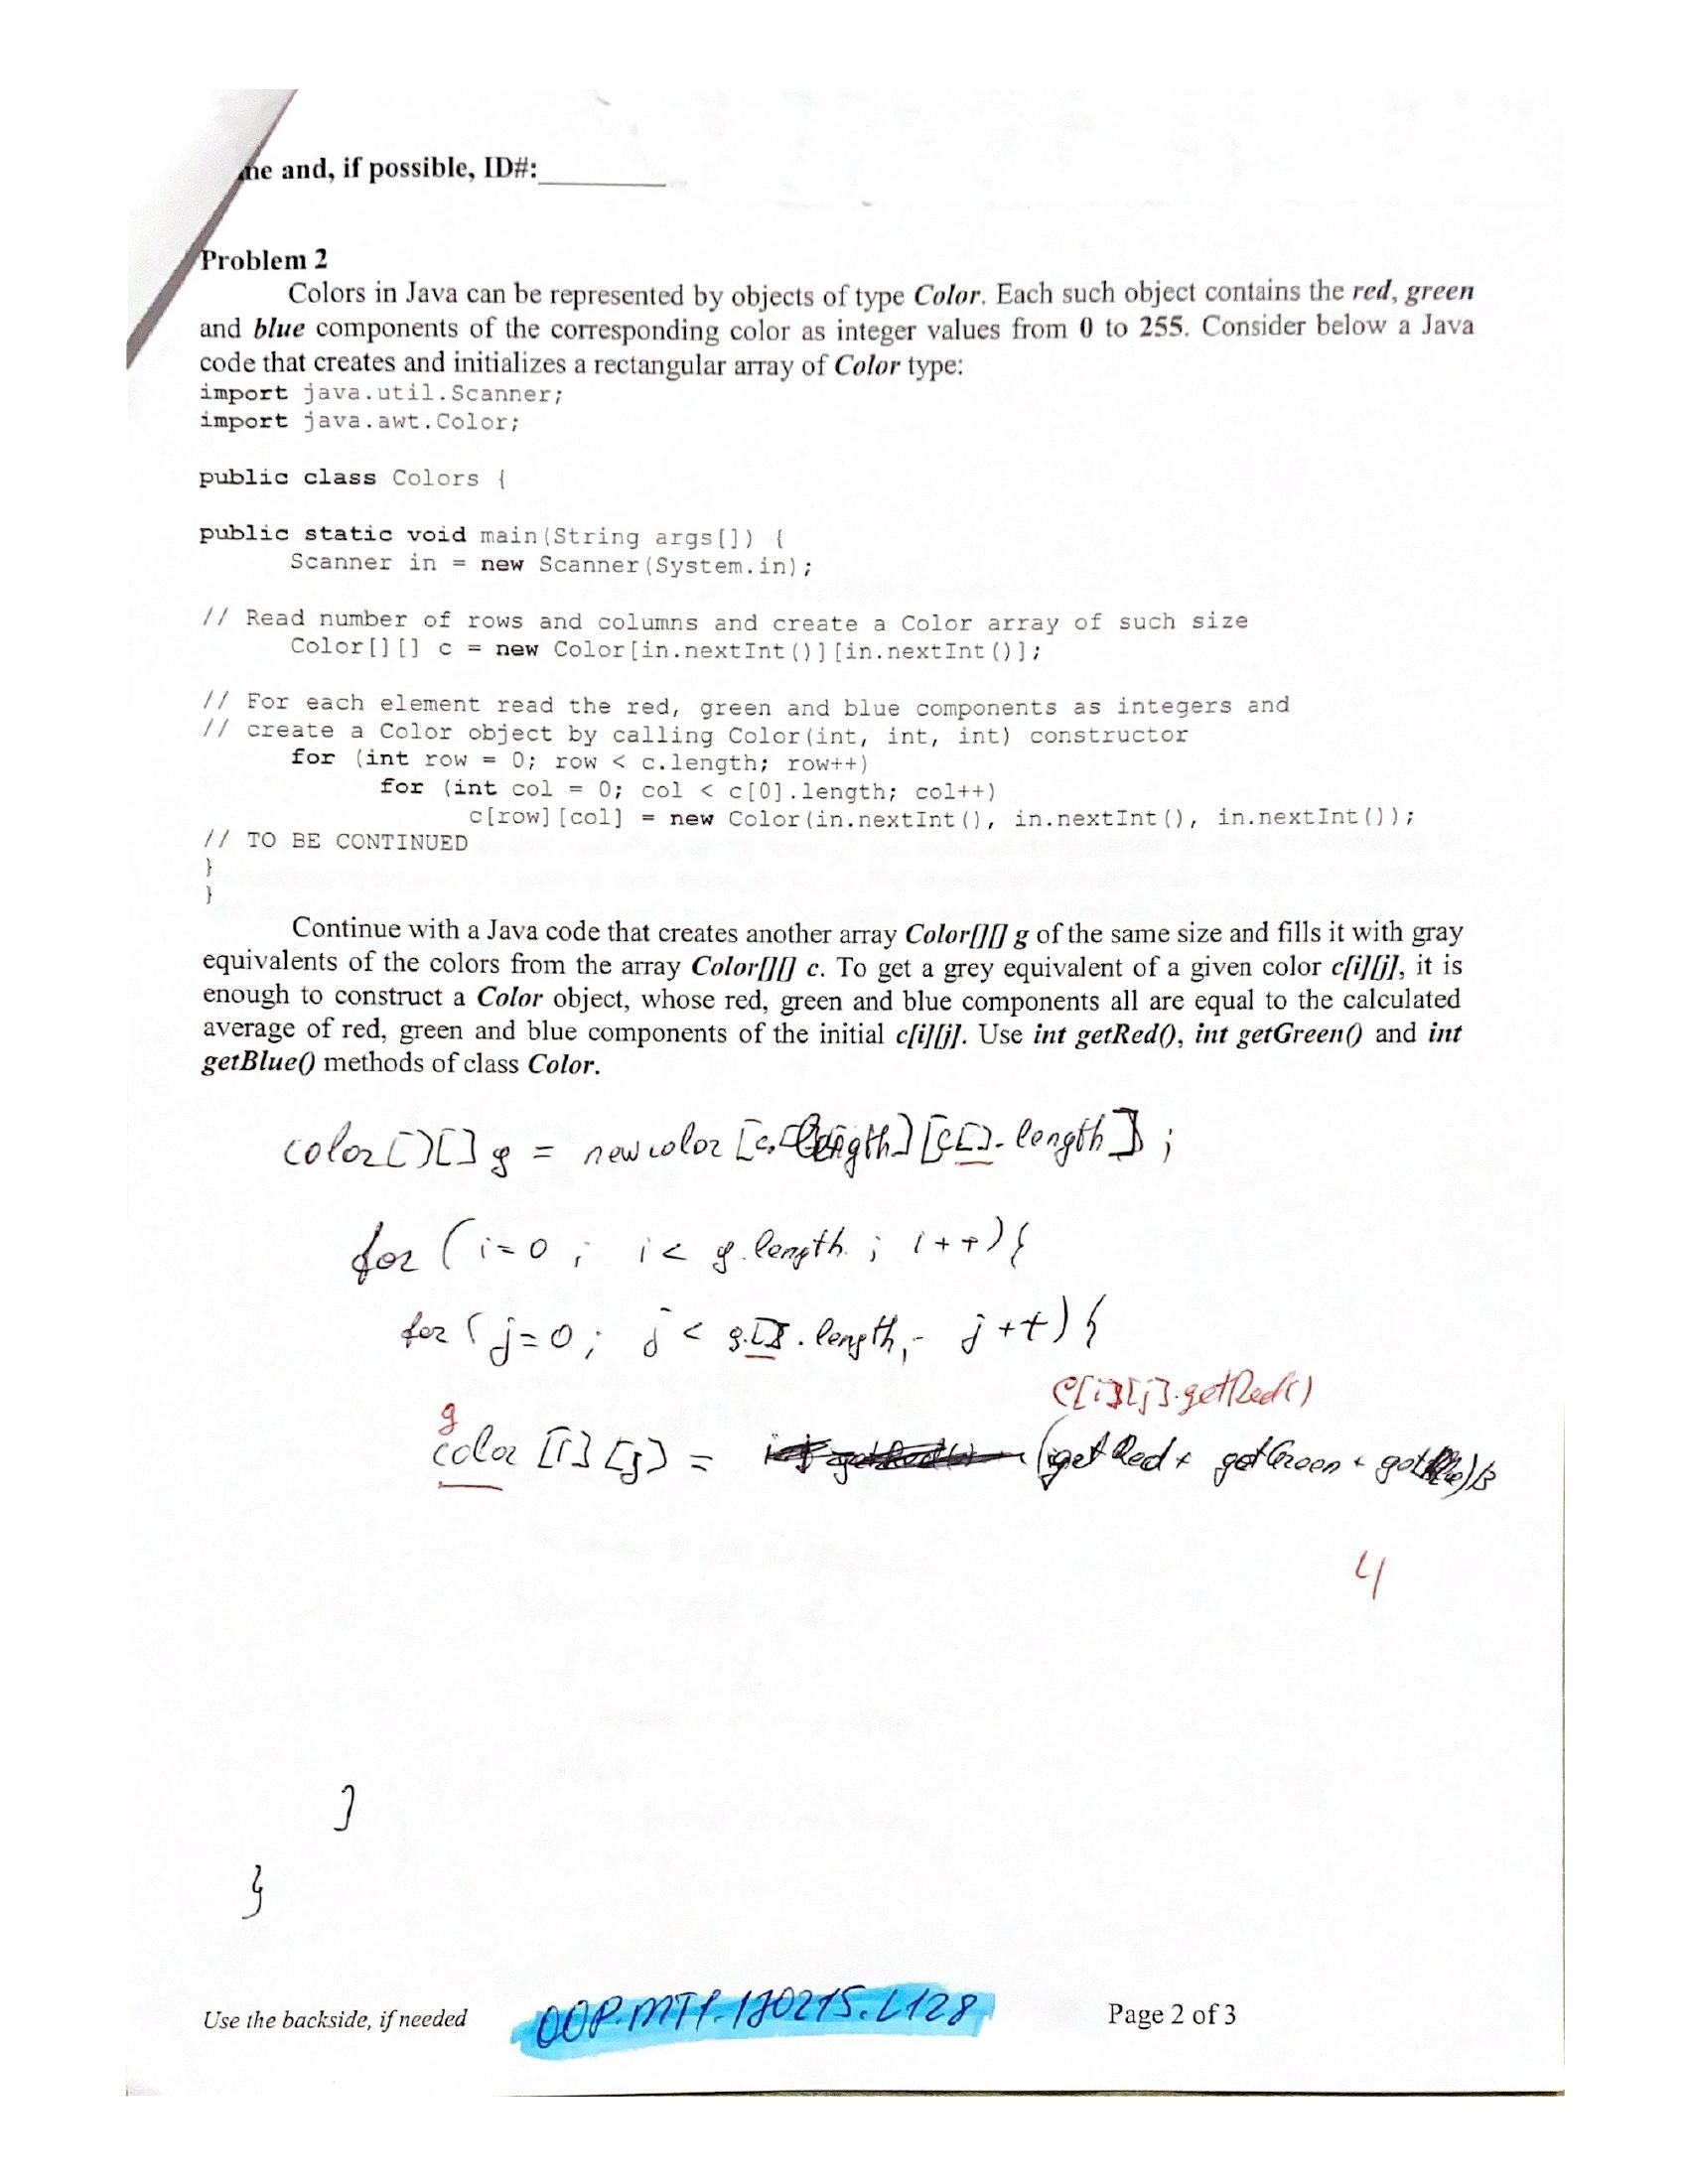 me and, if possible, ID#:
Problem 2
Colors in Java can be represented by objects of type Color. Each such object contains the red, green
and blue components of the corresponding color as integer values from 0 to 255. Consider below a Java
code that creates and initializes a rectangular array of Color type:
import java.util.Scanner;
import java.awt.Color;
public class Colors {
public static void main(String args[]) {
Scanner in = new Scanner(System.in);
// Read number of rows and columns and create a Color array of such size
Color[][] c = new Color[in.nextInt()][in.nextInt()];
// For each element read the red, green and blue components as integers and
// create a Color object by calling Color(int, int, int) constructor
for (int row = 0; row < c.length; row++)
for (int col = 0; col < c[0].length; col++)
c[row][col] = new Color(in.nextInt(), in.nextInt(), in.nextInt());
// TO BE CONTINUED
}
}
Continue with a Java code that creates another array Color[][] g of the same size and fills it with gray
equivalents of the colors from the array Color[][] c. To get a grey equivalent of a given color c[i][j], it is
enough to construct a Color object, whose red, green and blue components all are equal to the calculated
average of red, green and blue components of the initial c[i][j]. Use int getRed(), int getGreen() and int
getBlue() methods of class Color.
color[][] g = new color [c.length][c[].length];
for (i=0; i< g.length; i++){
for (j=0; j< g.[].length; j++){
c[i][j].getRed()
g
color [i][j] = (getRed + getGreen + getBlue)/3
4
}
}
Use the backside, if needed
OOP.MT1.170215.L128
Page 2 of 3